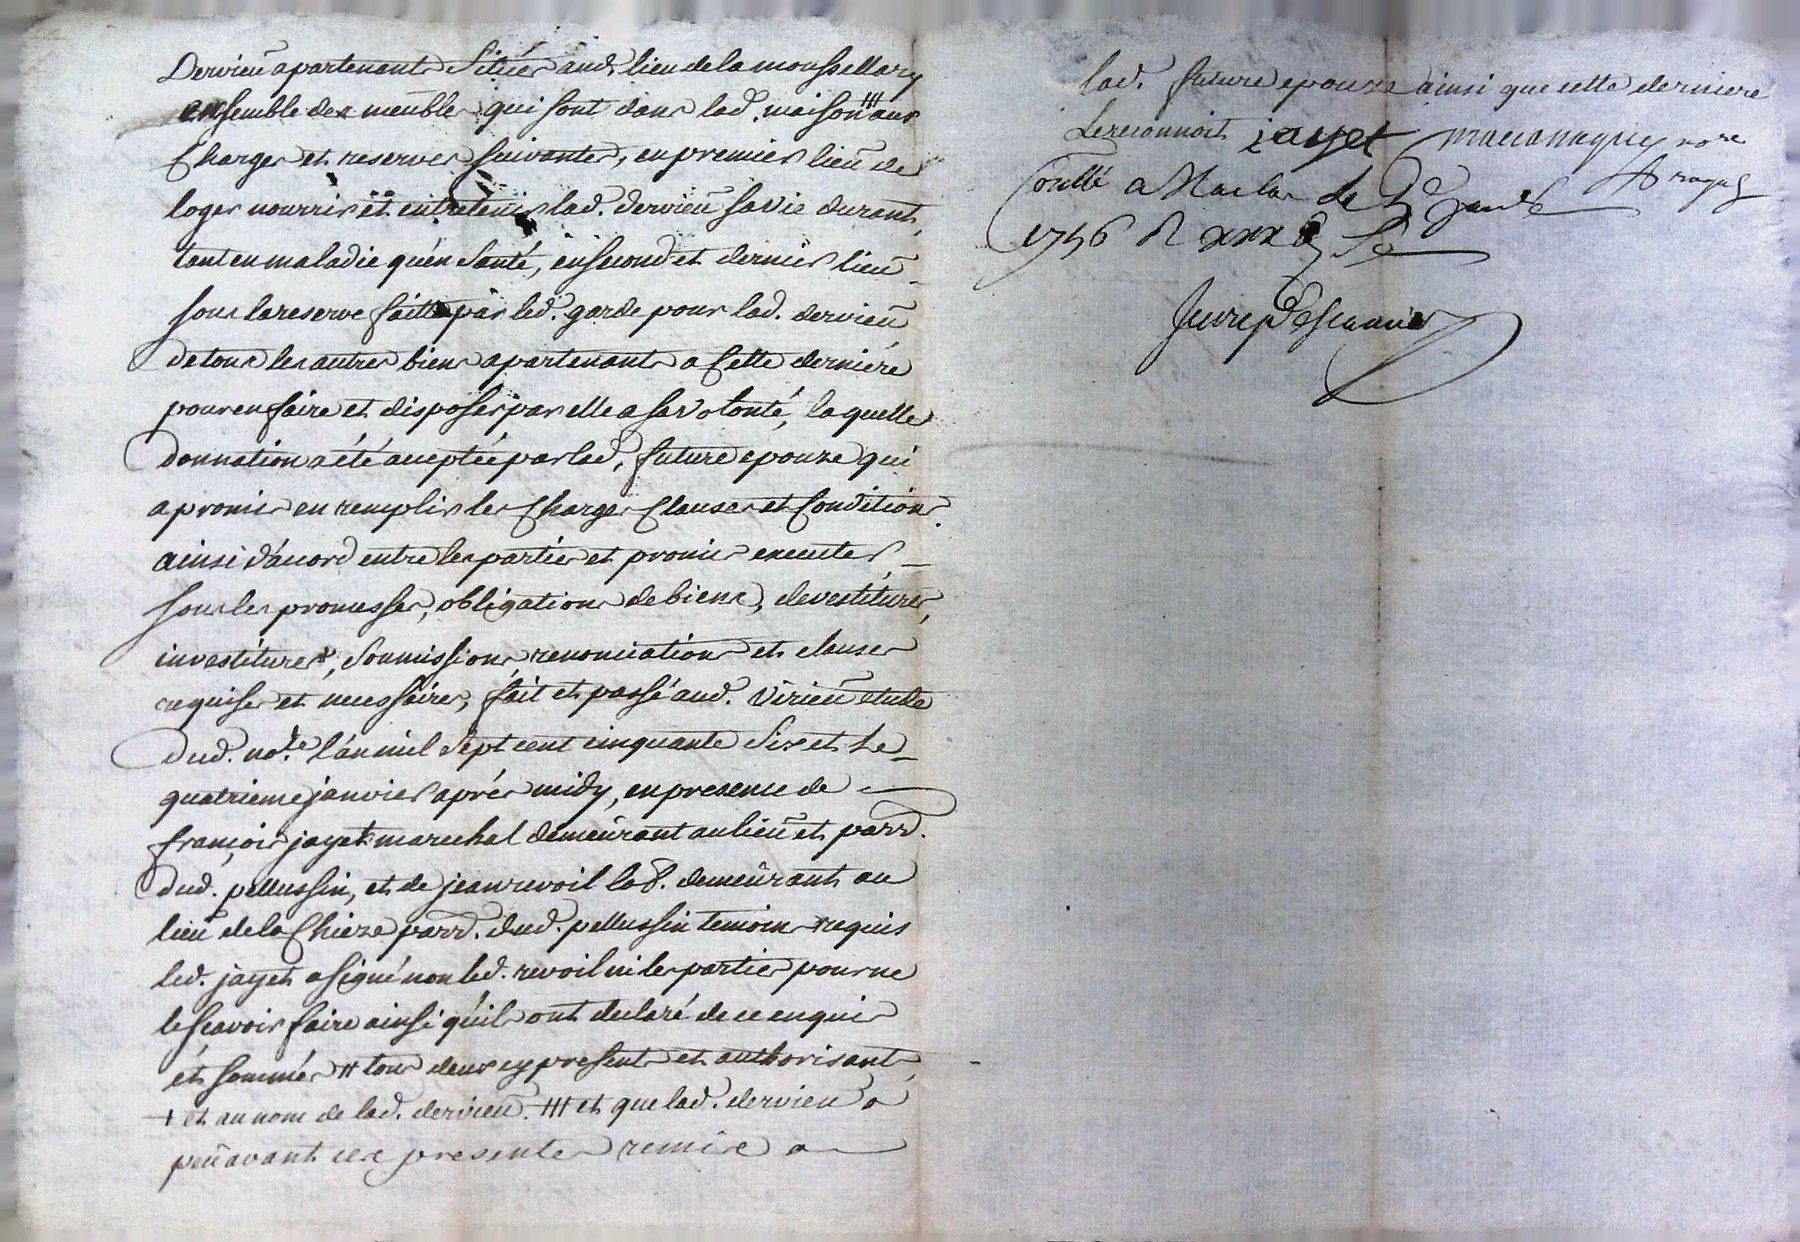 Dervieu apartenants Situés aud. lieu de la moussellary
ensemble des meubles qui sont dans lad. maison ⧻ aux
Charges et reserves suivantes, en premier lieu de
loger nourrir et entretenir lad. dervieu sa vie durant,
tant en maladie qu'en Santé, en second et dernier lieu
sous la reserve faitte par led. garde pour lad. dervieu
de tous les autres biens apartenants a Cette derniére
pour en faire et disposer par elle a sa volonté, la quelle
donnation a été acceptée par lad. future epouze qui
a promis en remplir les Charges Clauses et Conditions
ainsi d'accord entre les parties et promis executer
sous les promesses, obligations de biens, devestitures,
investitures, soumissions, renonciations et clauses
requises et necessaires, fait et passé aud. Virieu etude
dud. no.re l'an mil sept cent cinquante six et Le
quatrieme janvier aprés midy, en presence de
françois jayet marechal demeurant au lieu et parr.
dud. pellussin, et de jean revoil lab. demeurant au
lieu de la Chieze parr. dud. pellussin temoins requis
led. jayet a signé non led. revoil ni les parties pour ne
le sçavoir faire ainsi qu'ils ont declaré de ce enquis
et sommés # tous deux cy presents et authorisant,
+ et au nom de lad. dervieu. ⧻ et que lad. dervieu a
peu avant ces presentes remis a
lad. future epouze ainsi que cette derniere
Le reconnoit jayet no.re
Conllé a Maclas le 5e janv.
1756 R